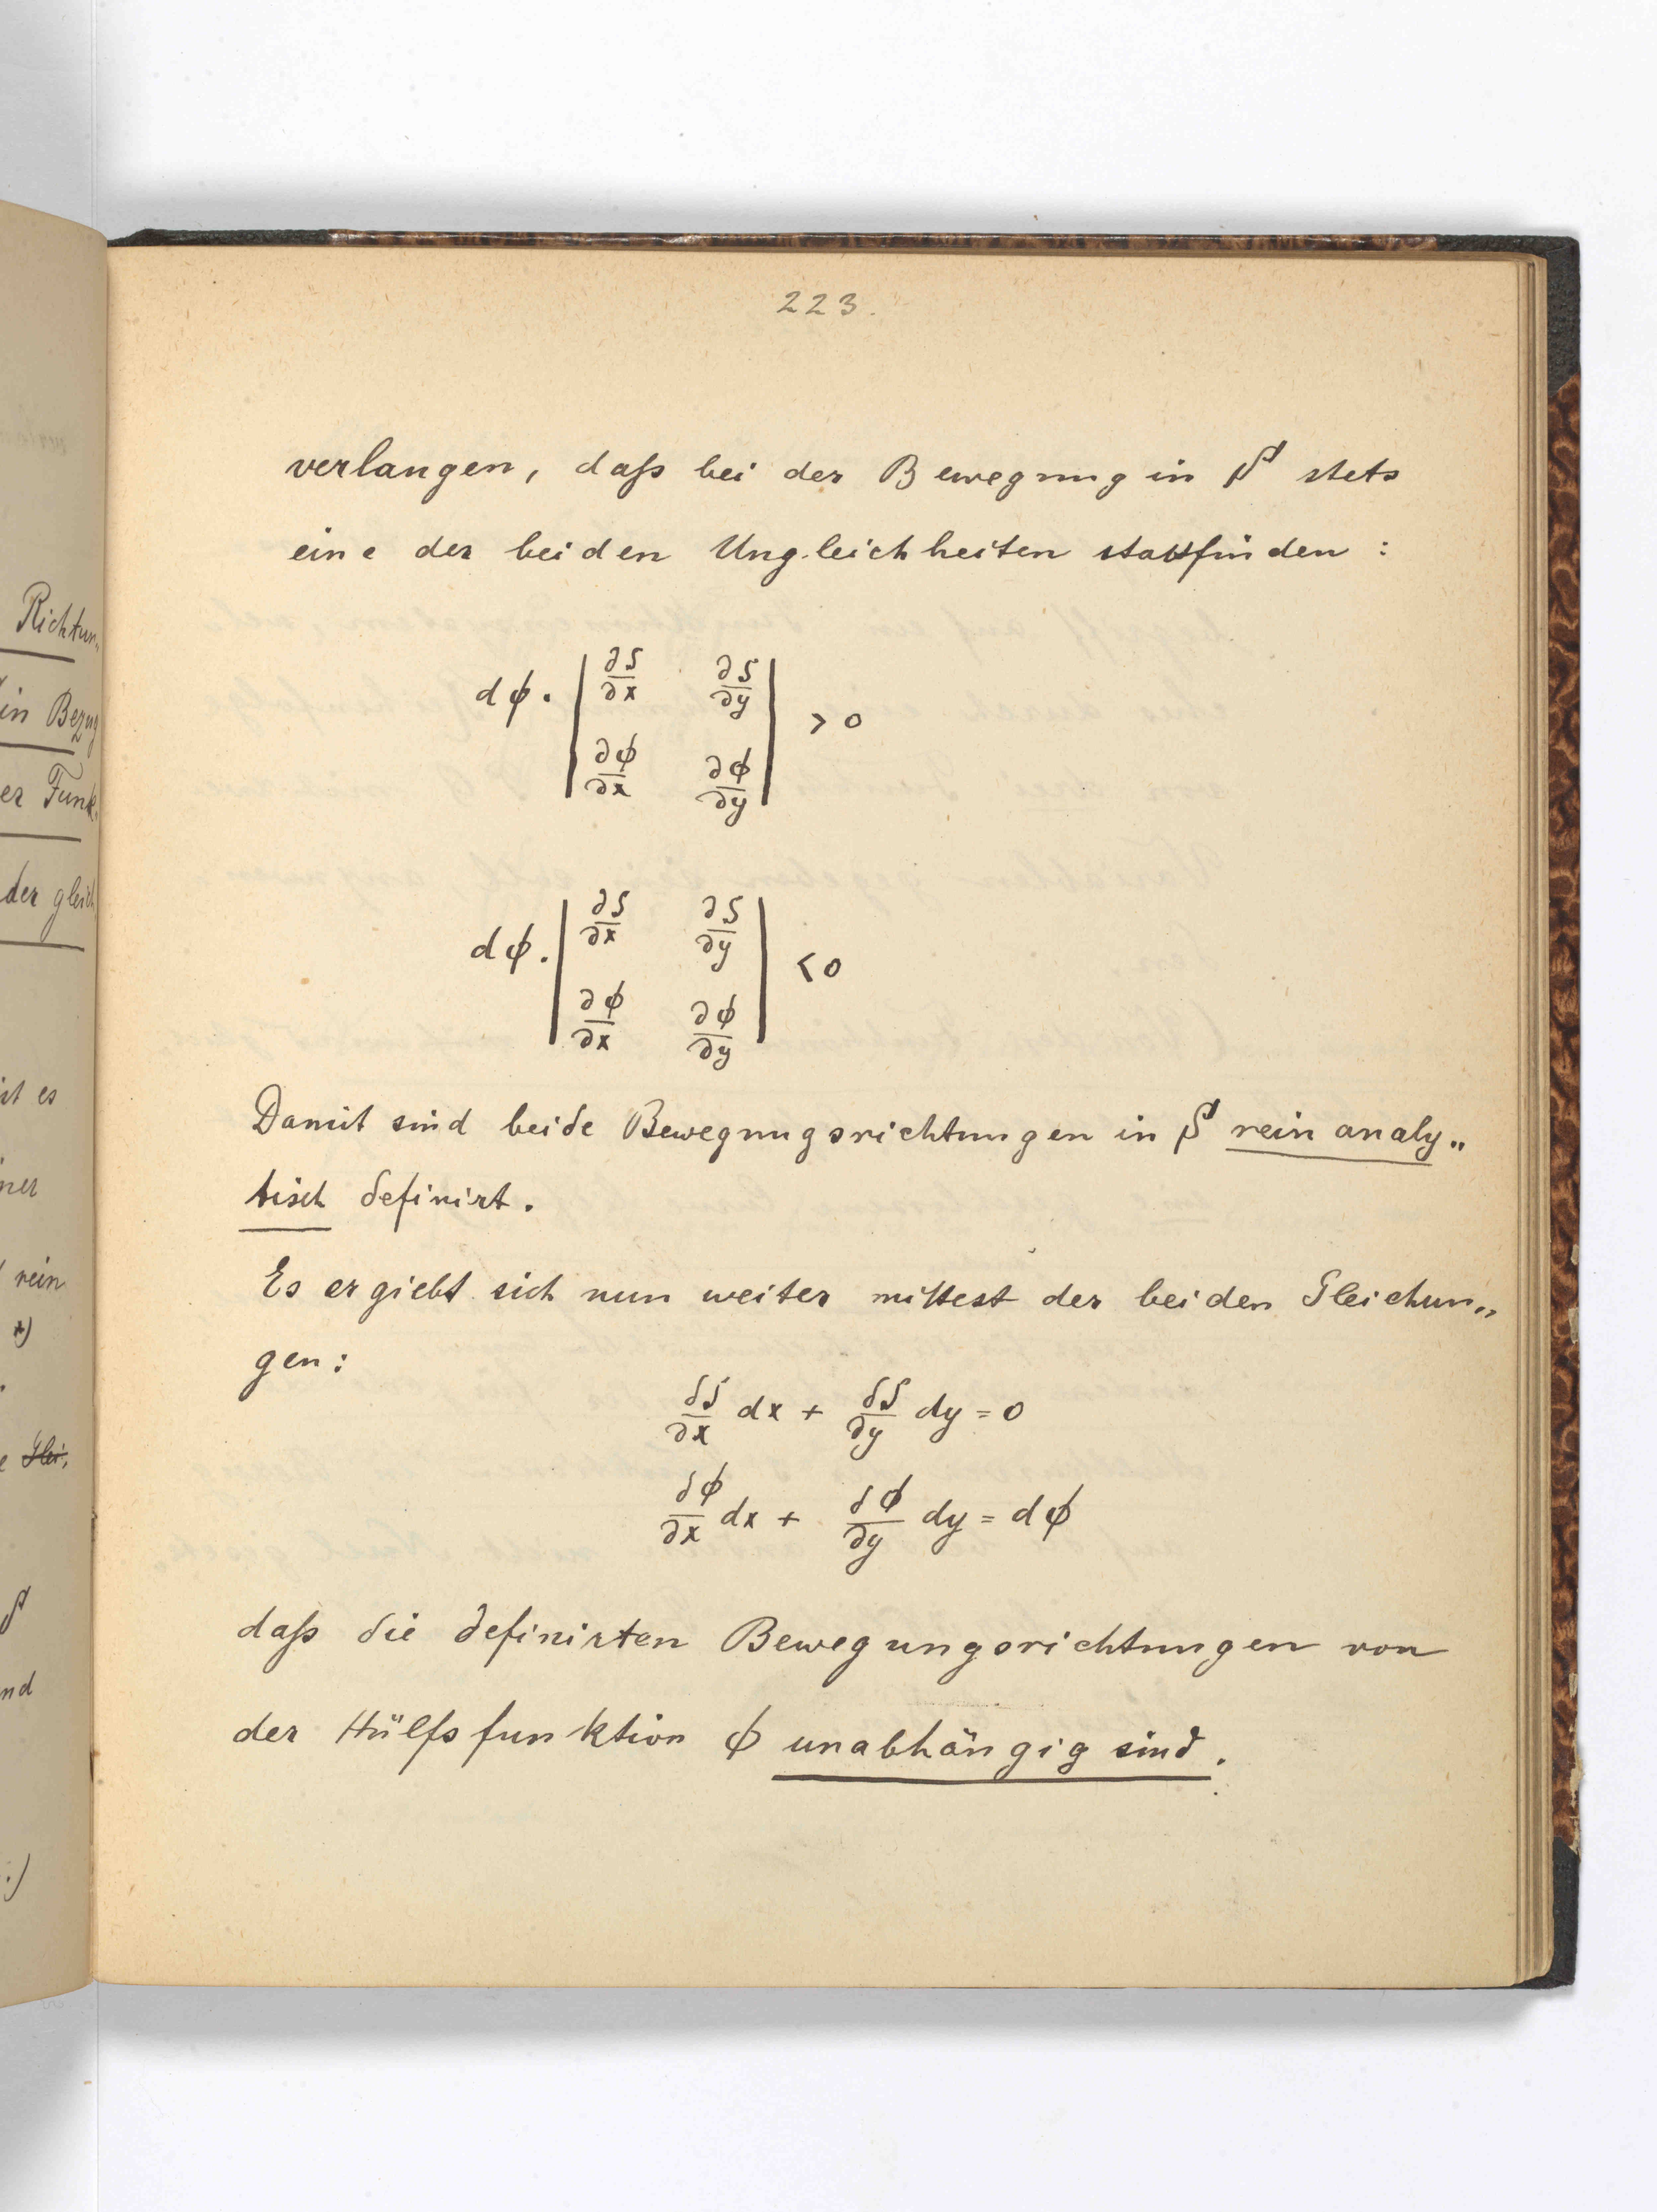 223.
verlangen, daß bei der Bewegung in S stets
eine der beiden Ungleichheiten stattfinden :
dϕ. | ∂S/∂x ∂S/∂y |
| ∂ϕ/∂x ∂ϕ/∂y | > 0
dϕ. | ∂S/∂x ∂S/∂y |
| ∂ϕ/∂x ∂ϕ/∂y | < 0
Damit sind beide Bewegungsrichtungen in S rein analy„
tisch definirt.
Es ergiebt sich nun weiter mittest der beiden Gleichun„
gen:
∂S/∂x dx + ∂S/∂y dy = 0
∂ϕ/∂x dx + ∂ϕ/∂y dy = dϕ
daß die definirten Bewegungsrichtungen von
der Hülfsfunktion ϕ unabhängig sind.
Richtun„
in Bezug
er Funk„
der gleich
ist es
iner
rein
*)
Glei„
S
nd
:)